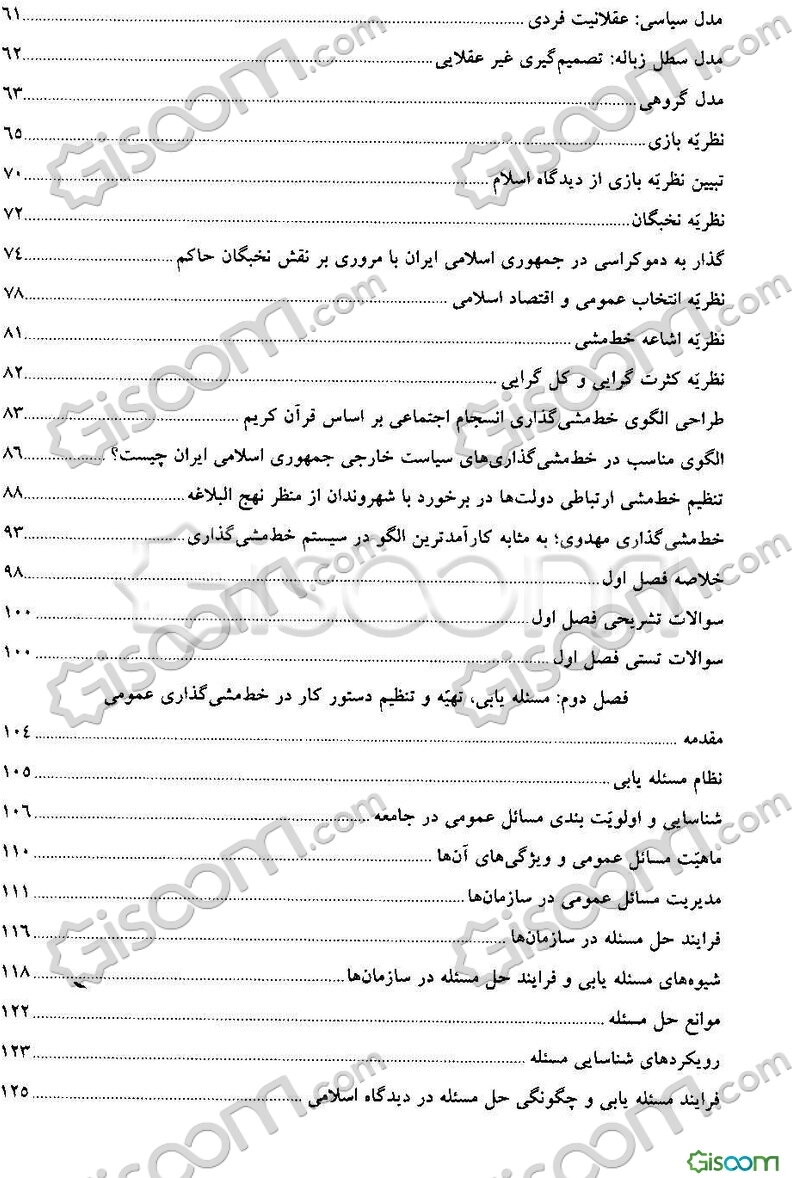 مدل سیاسی: عقلانیت فردی ........ ٦١
مدل سطل زباله: تصمیم‌گیری غیر عقلایی ........ ٦٢
مدل گروهی ........ ٦٣
نظریّه بازی ........ ٦٥
تبیین نظریّه بازی از دیدگاه اسلام ........ ٧٠
نظریّه نخبگان ........ ٧٢
گذار به دموکراسی در جمهوری اسلامی ایران با مروری بر نقش نخبگان حاکم ........ ٧٤
نظریّه انتخاب عمومی و اقتصاد اسلامی ........ ٧٨
نظریّه اشاعه خط‌مشی ........ ٨١
نظریّه کثرت گرایی و کل گرایی ........ ٨٢
طراحی الگوی خط‌مشی‌گذاری انسجام اجتماعی بر اساس قرآن کریم ........ ٨٣
الگوی مناسب در خط‌مشی‌گذاری‌های سیاست خارجی جمهوری اسلامی ایران چیست؟ ........ ٨٦
تنظیم خط‌مشی ارتباطی دولت‌ها در برخورد با شهروندان از منظر نهج البلاغه ........ ٨٨
خط‌مشی‌گذاری مهدوی؛ به مثابه کارآمدترین الگو در سیستم خط‌مشی‌گذاری ........ ٩٣
خلاصه فصل اول ........ ٩٨
سوالات تشریحی فصل اول ........ ١٠٠
سوالات تستی فصل اول ........ ١٠٠
فصل دوم: مسئله یابی، تهیّه و تنظیم دستور کار در خط‌مشی‌گذاری عمومی
مقدمه ........ ١٠٤
نظام مسئله یابی ........ ١٠٥
شناسایی و اولویّت بندی مسائل عمومی در جامعه ........ ١٠٦
ماهیّت مسائل عمومی و ویژگی‌های آن‌ها ........ ١١٠
مدیریت مسائل عمومی در سازمان‌ها ........ ١١١
فرایند حل مسئله در سازمان‌ها ........ ١١٦
شیوه‌های مسئله یابی و فرایند حل مسئله در سازمان‌ها ........ ١١٨
موانع حل مسئله ........ ١٢٢
رویکردهای شناسایی مسئله ........ ١٢٣
فرایند مسئله یابی و چگونگی حل مسئله در دیدگاه اسلامی ........ ١٢٥
Gisoom